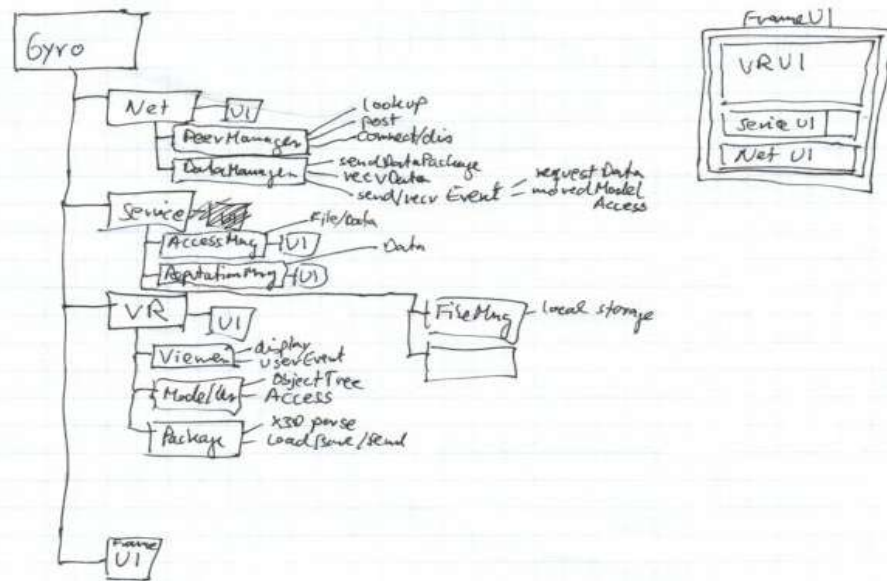 Gyro
Net
UI
PeerManager
lookup
post
connect/dis
DataManager
sendDataPackage
recvData
send/recv Event
requestData
movedModel
Access
Service
AccessMng
UI
File/Data
ReputationMng
UI
Data
FileMng
local storage
VR
UI
Viewer
display
userEvent
Model
ObjectTree
Access
Package
X3D parse
Load/save/send
Frame
UI
FrameUI
VR UI
Serice UI
Net UI